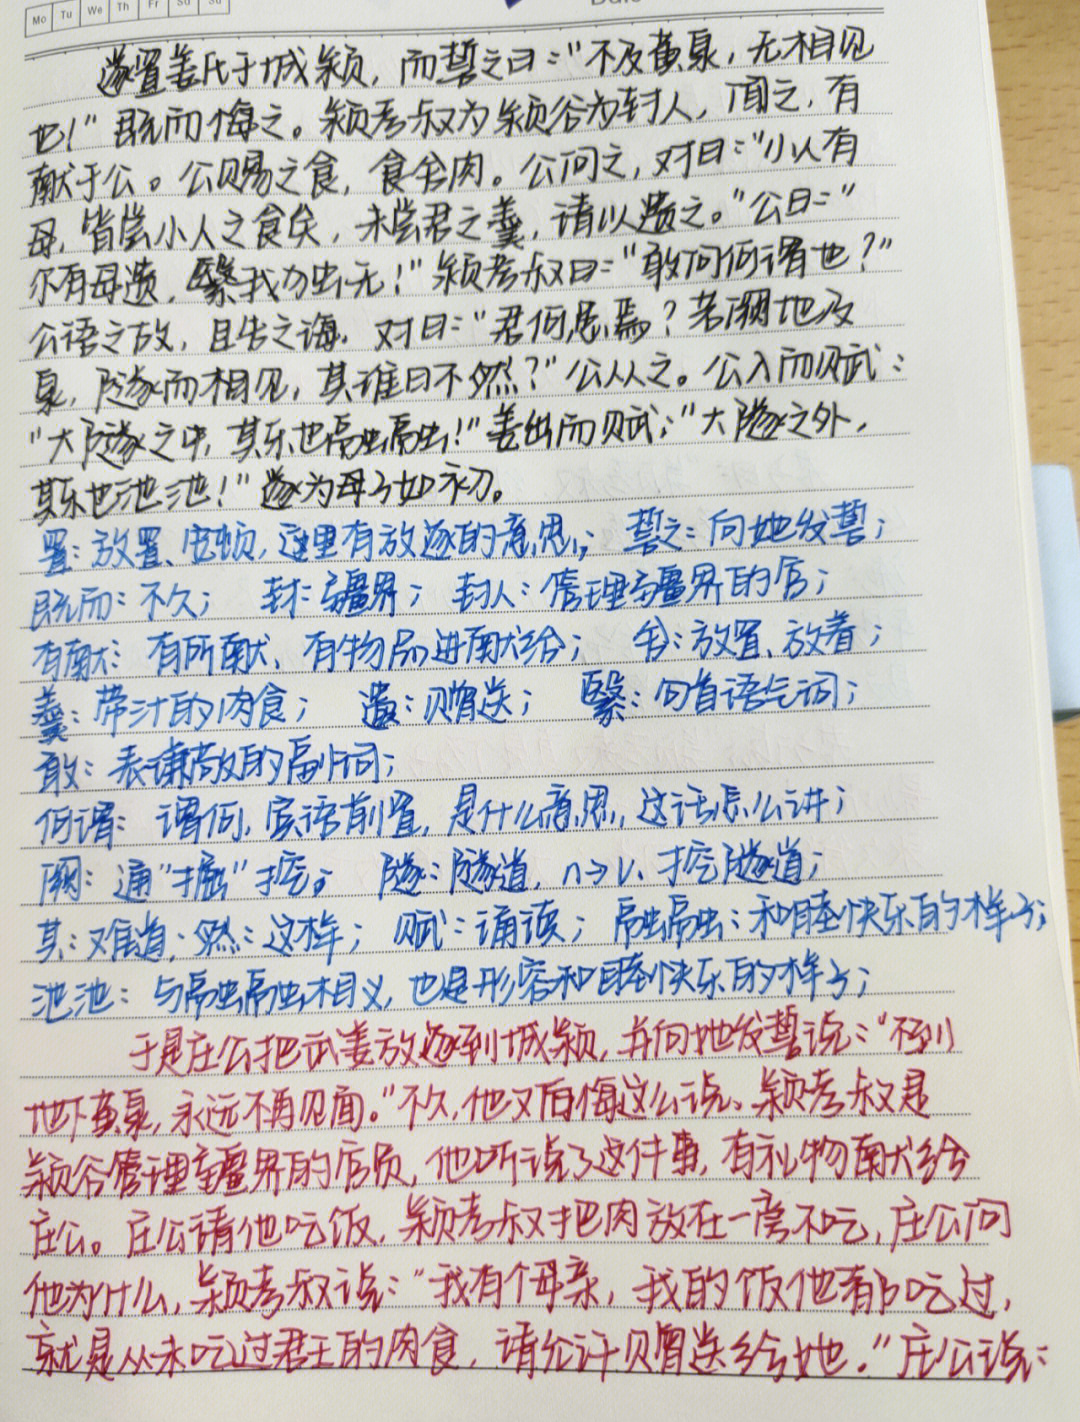 Mo Tu We Th Fr Sa Su
遂置姜氏于城颍，而誓之曰："不及黄泉，无相见
也！"既而悔之。颍考叔为颍谷为封人，闻之，有
献于公。公赐之食，食舍肉。公问之，对曰："小人有
母，皆尝小人之食矣，未尝君之羹，请以遗之。"公曰："
尔有母遗，繄我办出无！"颍考叔曰："敢问何谓也？"
公语之故，且告之诲，对曰："君何患焉？若阙地及
泉，隧而相见，其谁曰不然？"公从之。公入而赋：
"大隧之中，其乐也融融！"姜出而赋："大隧之外，
其乐也池池！"遂为母子如初。
置：放置、安顿，这里有放逐的意思；誓之：向她发誓；
既而：不久；封：疆界；封人：管理疆界的官；
有献：有所献、有物品进献给；舍：放置、放着；
羹：带汁的肉食；遗：赠送；繄：句首语气词；
敢：表谦敬的副词；
何谓：谓何，宾语前置，是什么意思，这话怎么讲；
阙：通"掘"挖；隧：隧道，n→v、挖隧道；
其：难道；然：这样；赋：诵读；融融：和睦快乐的样子；
池池：与融融相义，也是形容和睦快乐的样子；
于是庄公把武姜放逐到城颍，并向她发誓说："不到
地下黄泉，永远不再见面。"不久，他又后悔这么说、颍考叔是
颍谷管理疆界的官员，他听说了这件事，有礼物献给
庄公。庄公请他吃饭，颍考叔把肉放在一旁不吃，庄公问
他为什么，颍考叔说："我有个母亲，我的饭他都吃过，
就是从未吃过君王的肉食，请允许赠送给她。"庄公说：